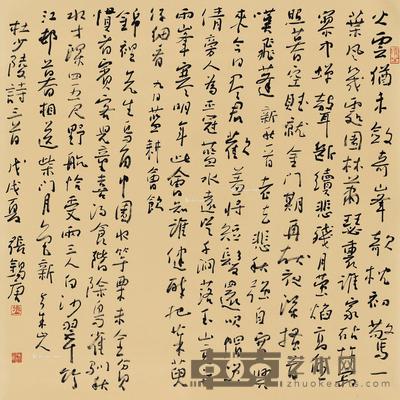 火雲猶未斂奇峯欹枕初驚一
葉風幾處園林蕭瑟裏誰家砧杵寂
寥中蟬聲斷續悲殘月螢焰高低
照暮空賦就金門期再献夜深搔首
嘆飛蓬 新秋 老去悲秋強自寬興
來今日盡君歡羞將短髮還吹帽笑
倩旁人為正冠藍水遠從千澗落玉山高並
兩峯寒明年此會知誰健醉把茱萸
仔細看 九日藍田會飲
錦裡先生烏角巾園收芋栗未全貧
慣看賓客兒童喜得食階除鳥雀馴秋
水才深四五尺野航恰受兩三人白沙翠竹
江邨暮相送柴門月色新 與朱山人
杜少陵詩三首 戊戌夏 張錫庚